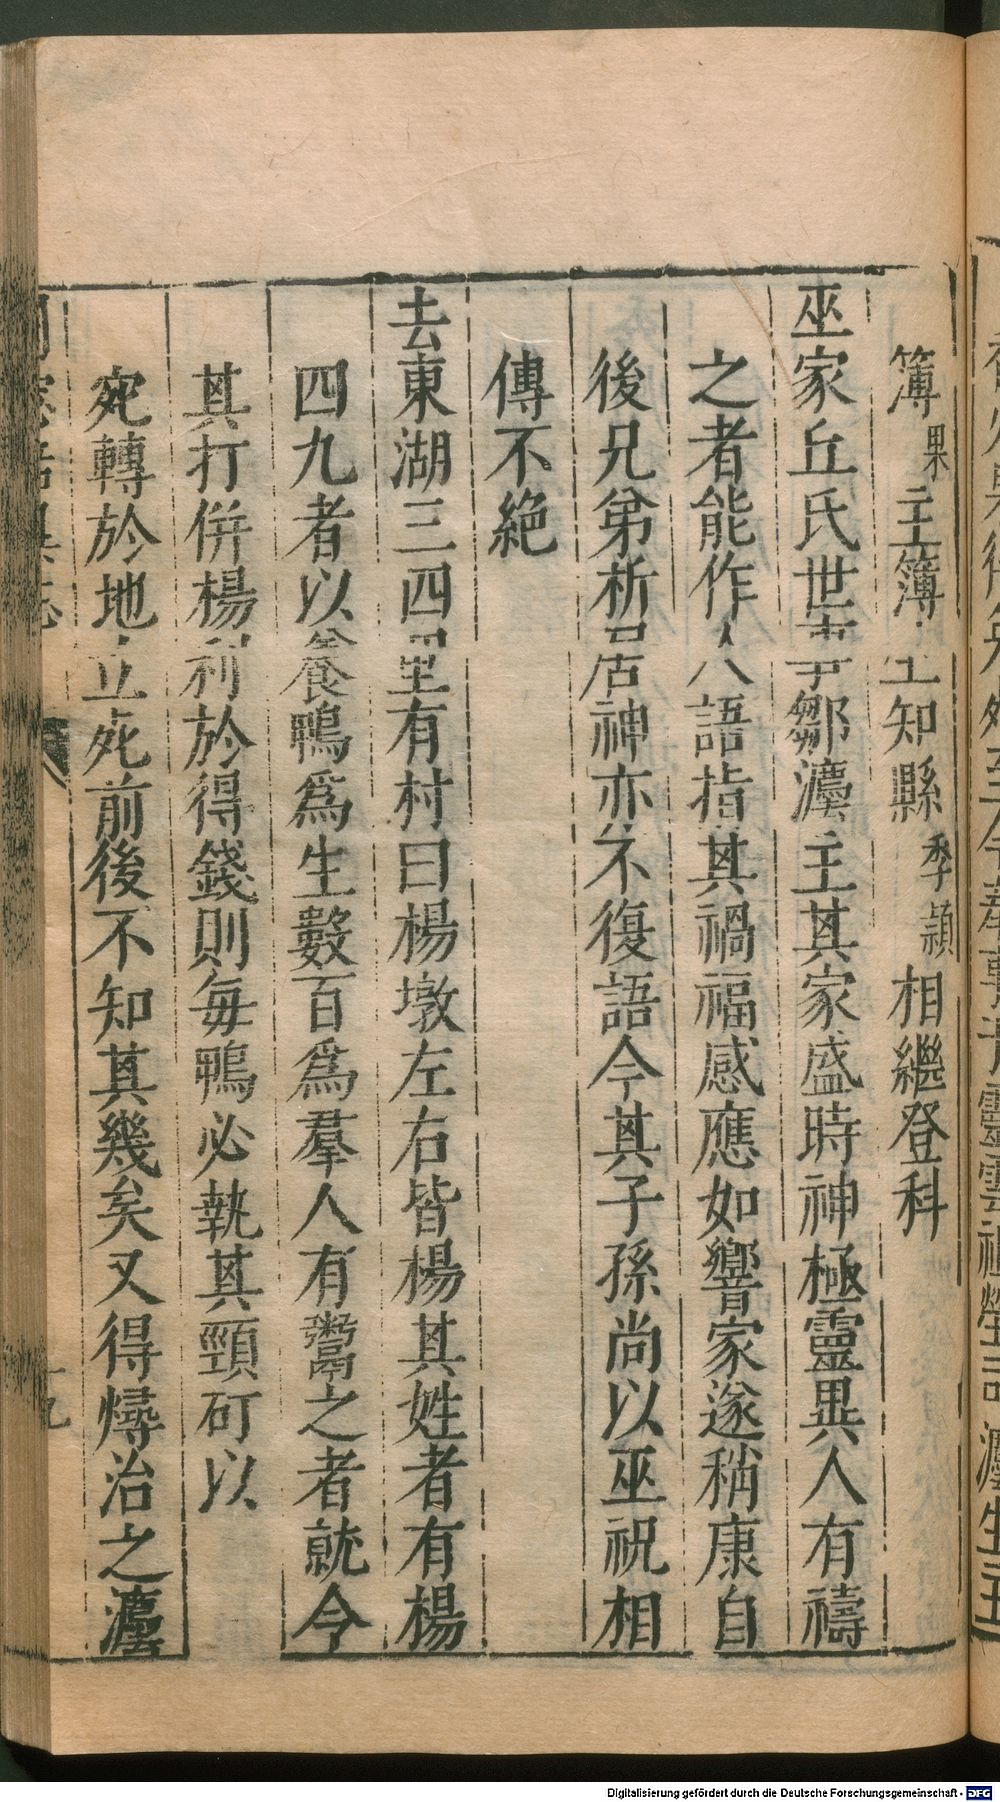 簿果主簿主知縣季頴相繼登科
巫家丘氏世事鄒灋主其家盛時神極靈異人有禱
之者能作人語指其禍福感應如響家遂稍康自
後兄弟析居神亦不復語今其子孫尚以巫祝相
傳不絶
去東湖三四里有村曰楊墩左右皆楊其姓者有楊
四九者以養鴨爲生數百爲羣人有鬻之者就令
其打併楊利於得錢則每鴨必執其頸砍以
宛轉於地立死前後不知其幾矣又得燖治之灋
十九
Digitalisierung gefördert durch die Deutsche Forschungsgemeinschaft - DFG